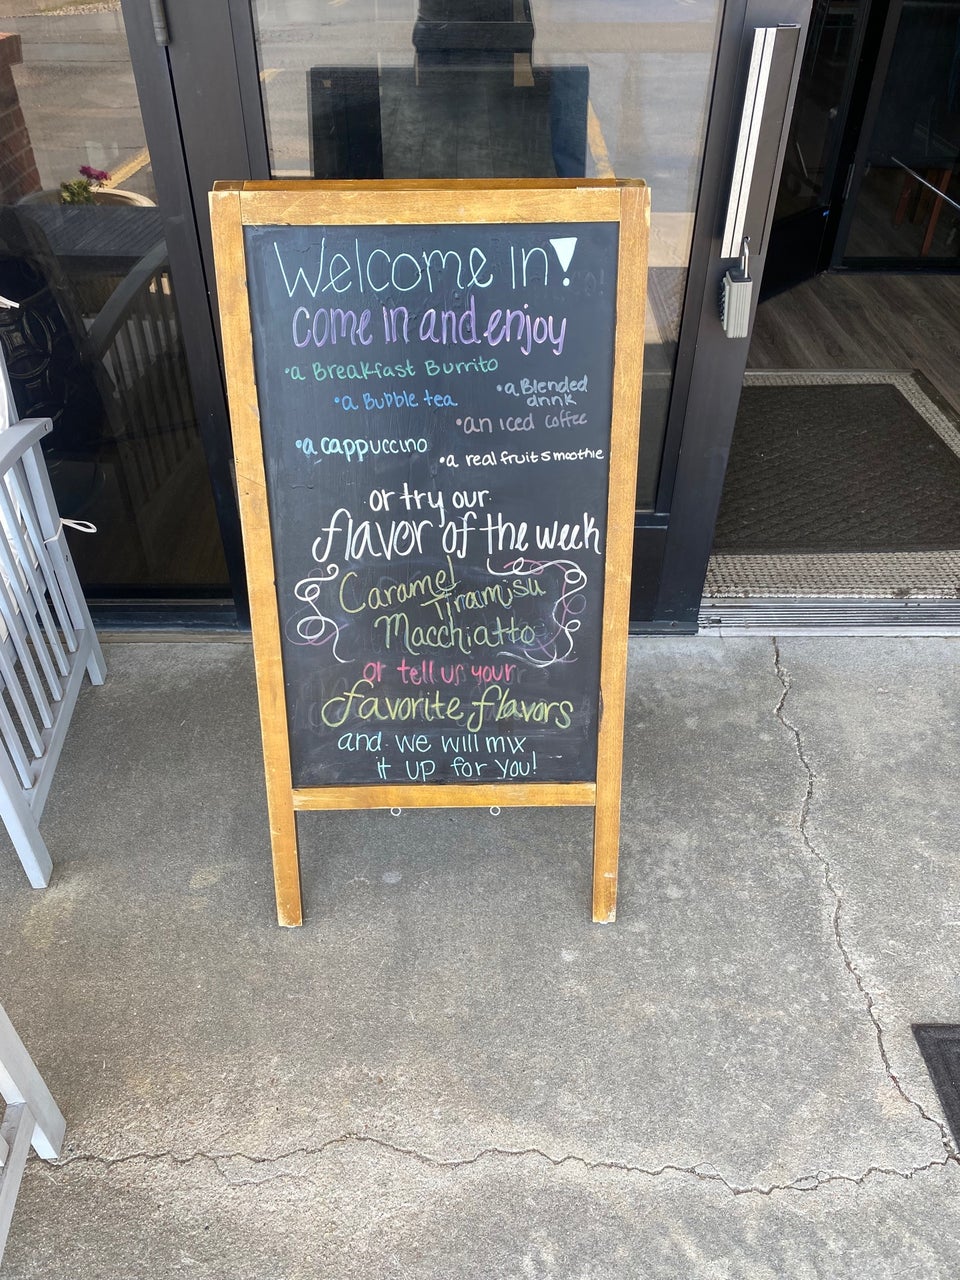 Welcome in!
come in and enjoy
•a Breakfast Burrito
•a Bubble tea
•a Blended
drink
•an iced coffee
•a cappuccino
•a real fruit smoothie
or try our
flavor of the week
Caramel
Tiramisu
Macchiatto
or tell us your
favorite flavors
and we will mix
it up for you!